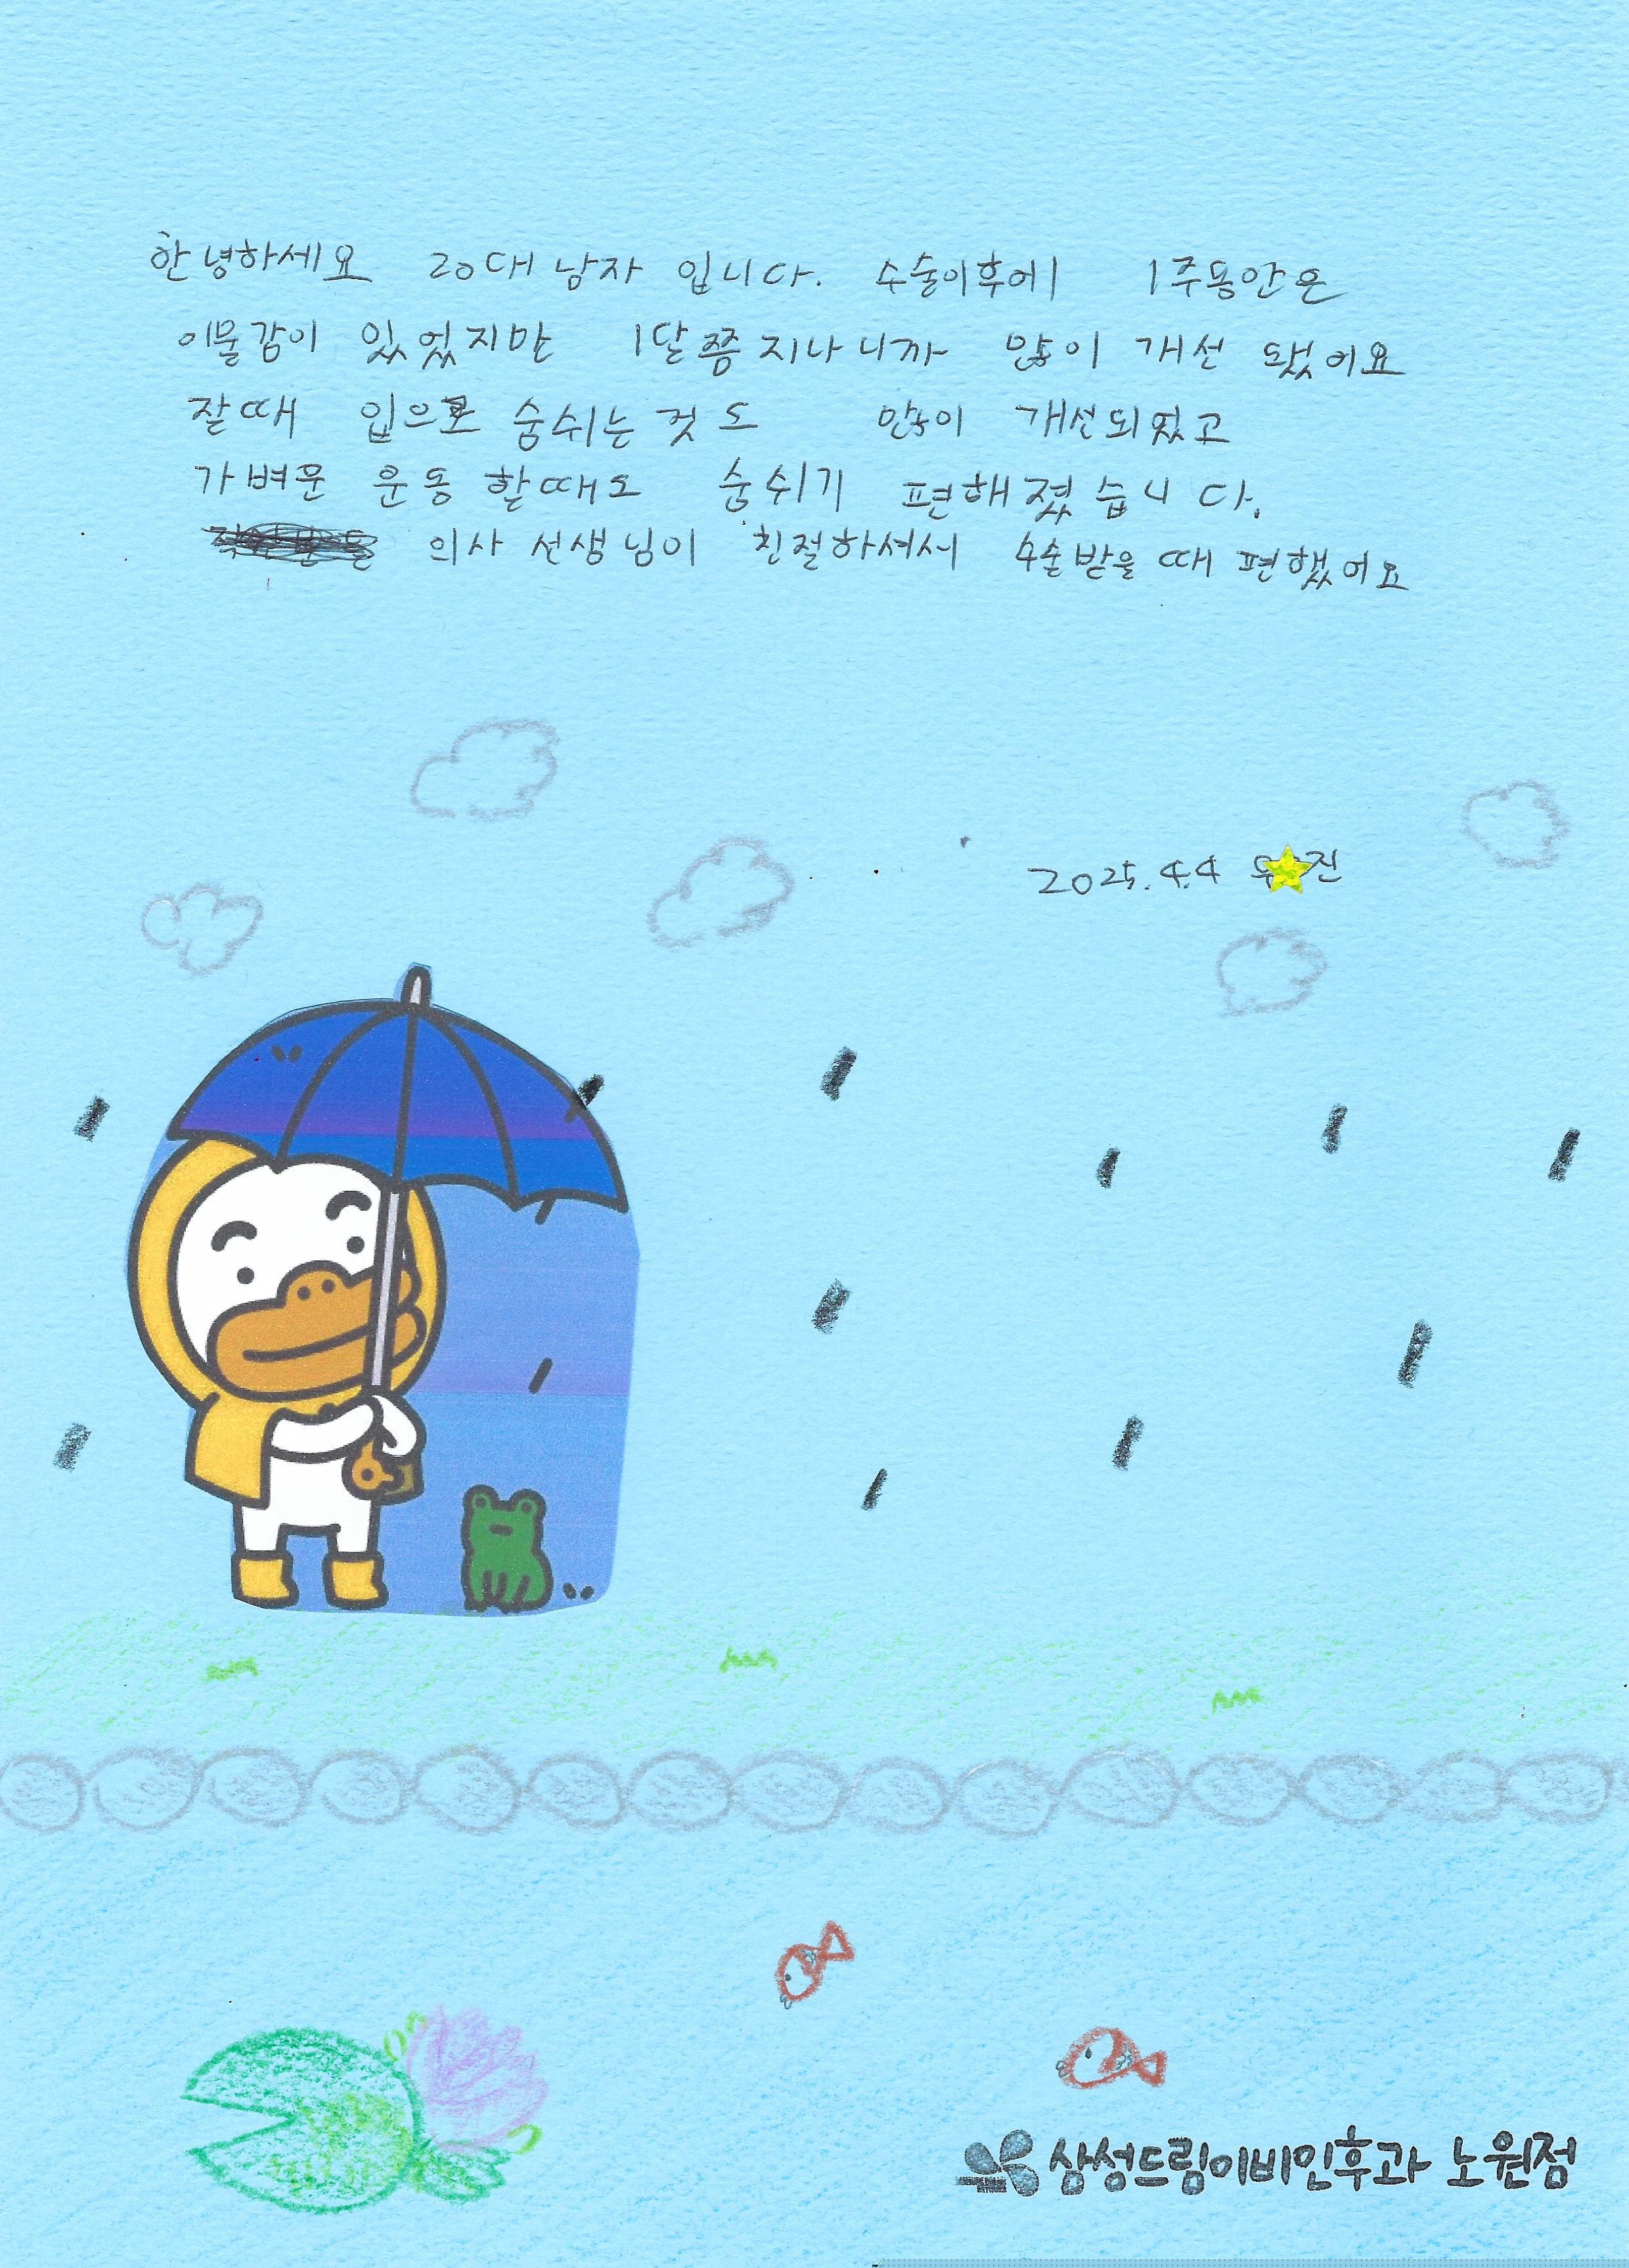 안녕하세요 20대 남자 입니다. 수술이후에 1주동안은
이물감이 있었지만 1달쯤 지나니까 많이 개선 됐어요
잘때 입으로 숨쉬는 것도 많이 개선되었고
가벼운 운동 할때도 숨쉬기 편해졌습니다.
의사 선생님이 친절하셔서 수술받을 때 편했어요
2025.4.4 우진
삼성드림이비인후과 노원점